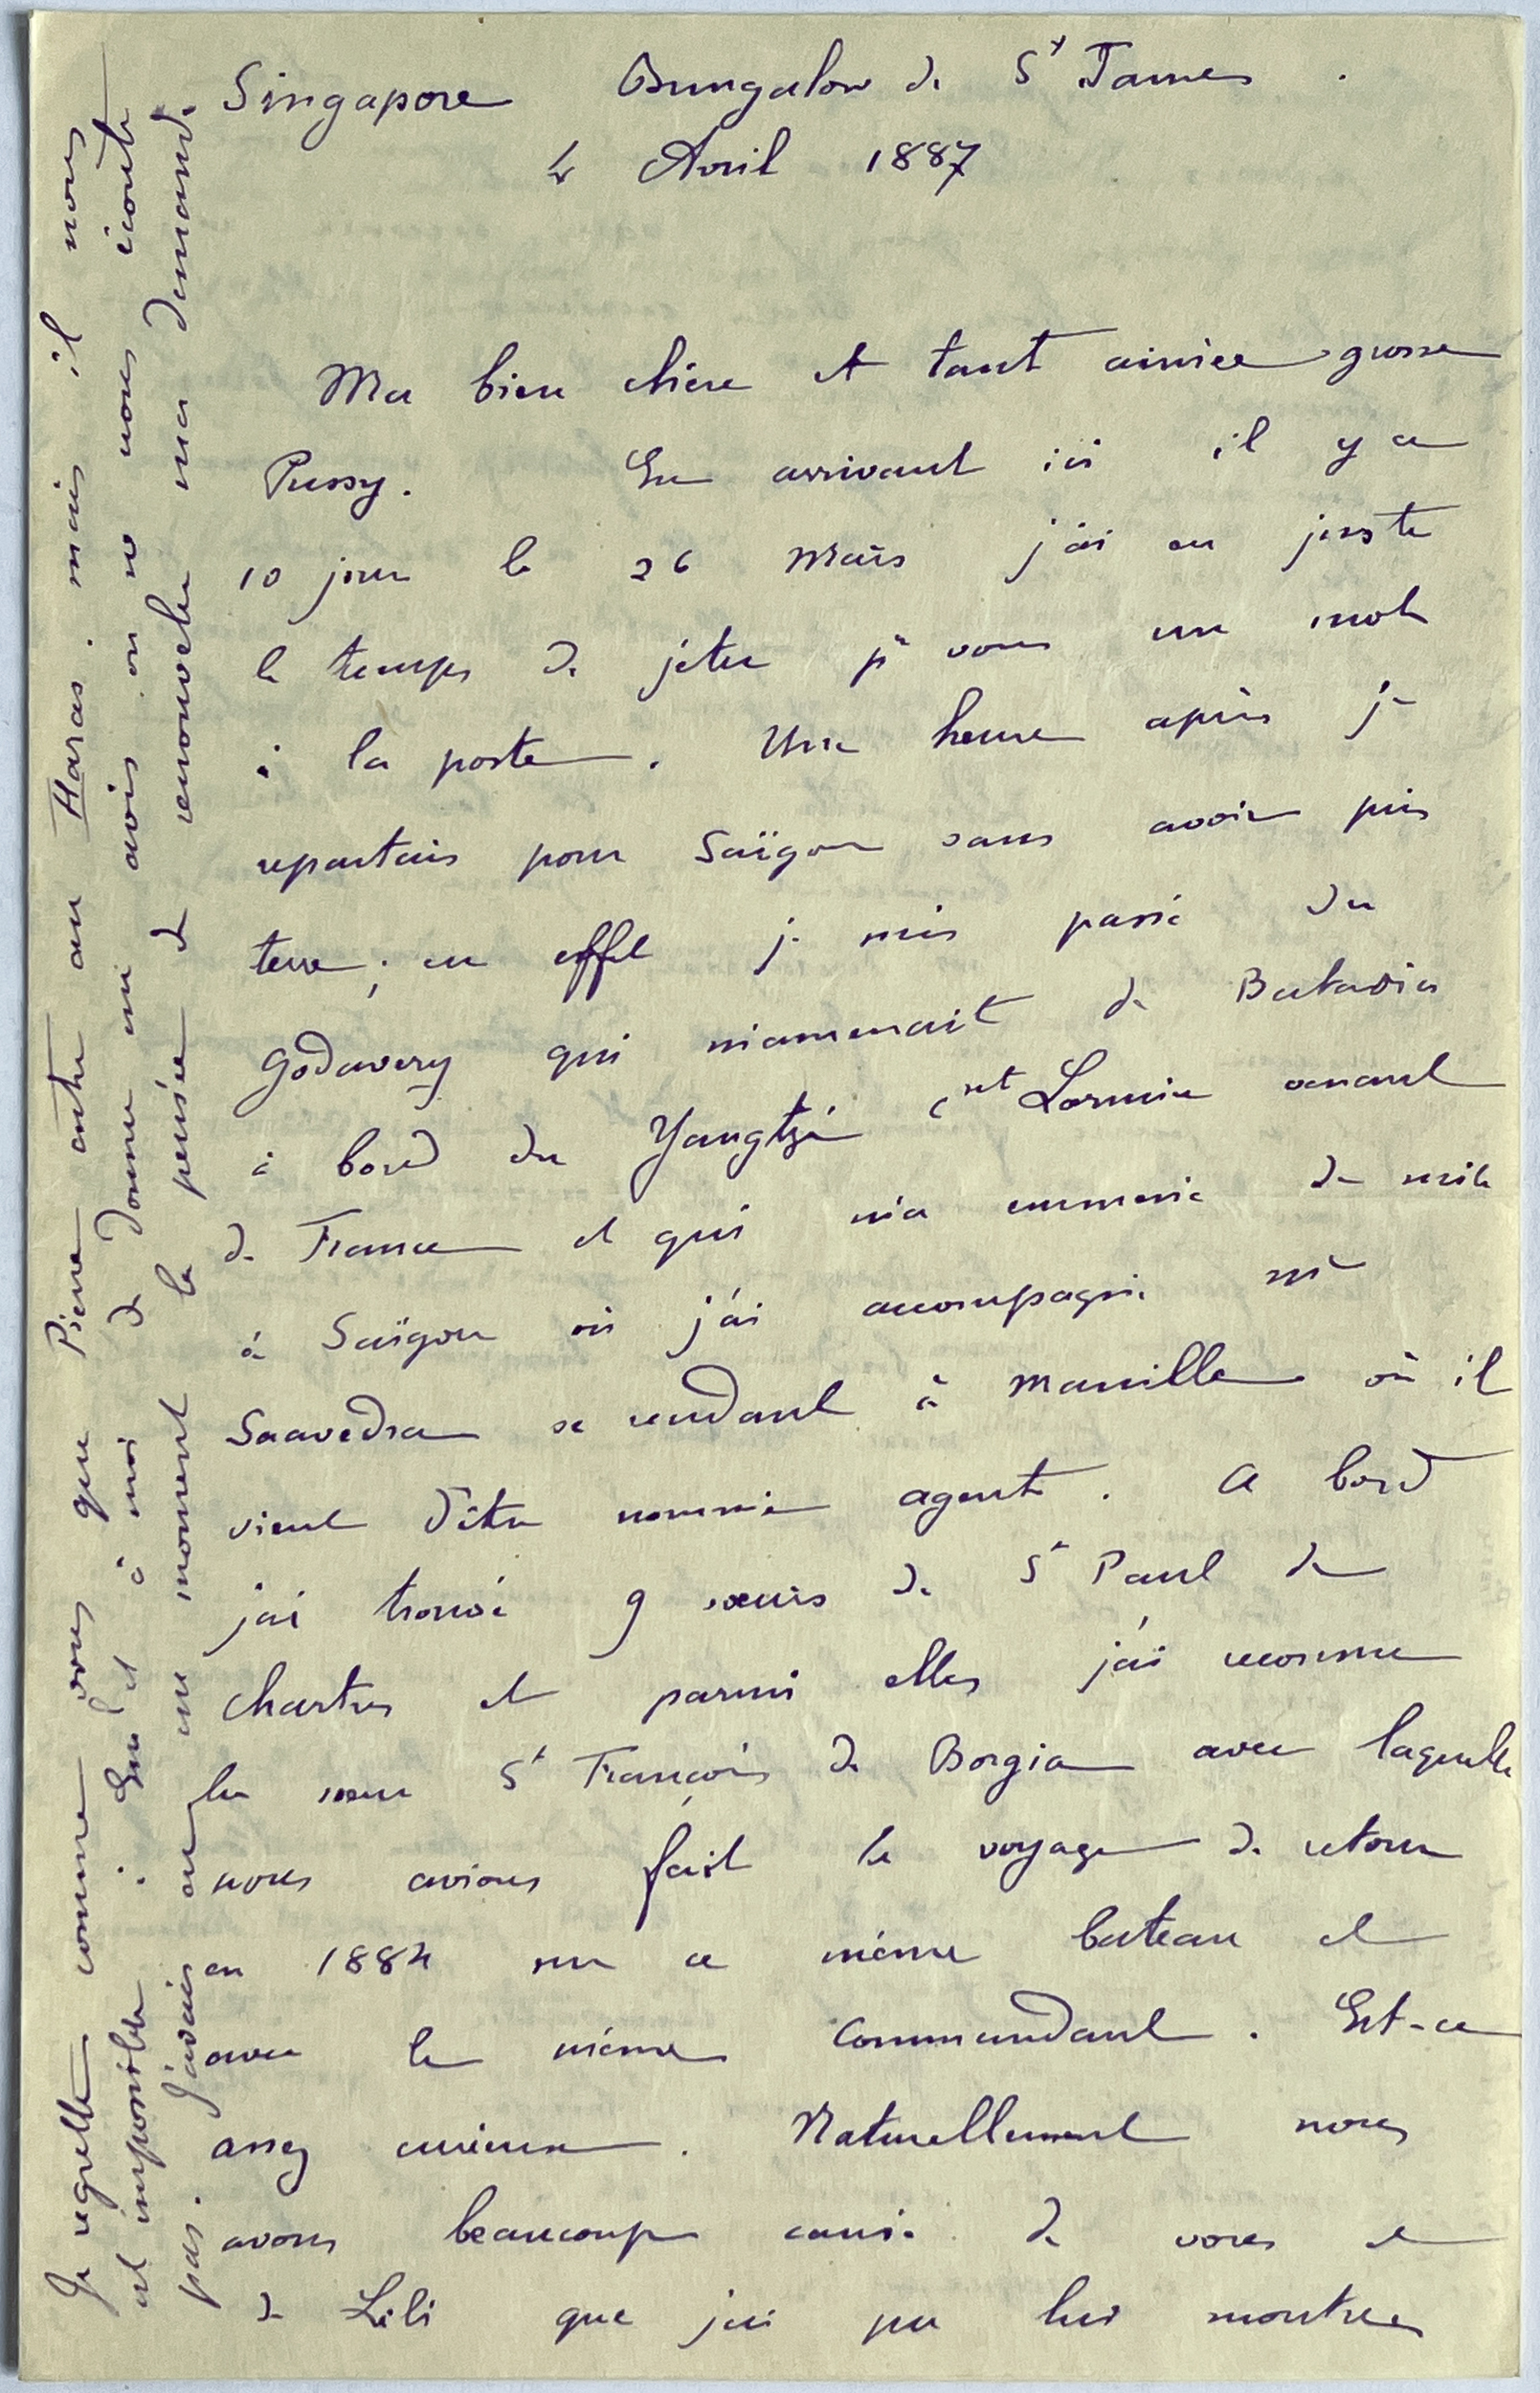 Singapore Bungalow de St James
4 Avril 1887
Ma bien chère et tant aimée grosse
Pussy. En arrivant ici il y a
10 jours le 26 Mars j'ai eu juste
le temps de jeter pr vous un mot
à la poste. Une heure après je
repartais pour Saïgon sans avoir pris
terre; en effet je suis passé du
Godavery qui m'amenait de Batavia
à bord du Yangtzé Ct Lormier venant
de France et qui m'a emmené de suite
à Saïgon où j'ai accompagné Mr
Saavedra se rendant à Manille où il
vient d'être nommé agent. A bord
j'ai trouvé 9 sœurs de St Paul de
Chartres et parmi elles j'ai reconnu
la sœur St François de Borgia avec laquelle
nous avions fait le voyage de retour
en 1884 sur ce même bateau et
avec le même Commandant. Est-ce
assez curieux. Naturellement nous
avons beaucoup causé de vous et
de Lili que j'ai pu lui montrer
Je regrette comme vous que Pierre entre au Haras. mais il nous
est impossible à Em et à moi de donner un avis. on ne nous écoute
pas. J'avais eu un moment la pensée de renouveler ma demande